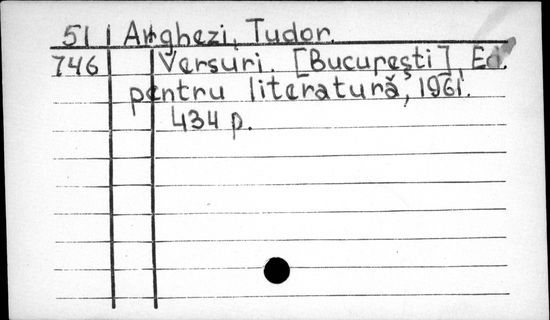 51 Arghezi, Tudor.
746 Versuri. [București], Ed.
pentru literatură, 1961.
434 p.